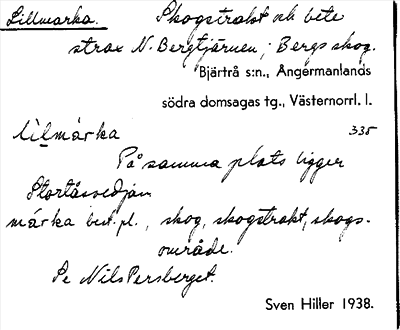 Lillmarka. Skogstrakt och bete
strax N. Bergtjärnen; Bergs skog.
Bjärtrå s:n., Ångermanlands
södra domsagas tg., Västernorrl. l.
lìlmárka 335
På samma plats ligger
Stortåsvedjan
márka best. pl., skog, skogstrakt, skogs-
område.
Se NilsPersberget.
Sven Hiller 1938.